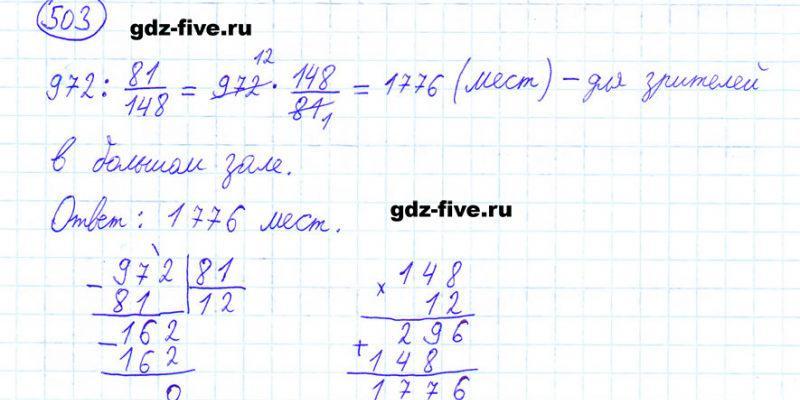 503
gdz-five.ru
972 : 81/148 = 972 12 · 148/81 1 = 1776 (мест) – для зрителей
в большом зале.
Ответ: 1776 мест.
gdz-five.ru
− 972 | 81
81 | 12
− 162
162
0
× 148
12
296
+ 148
1776